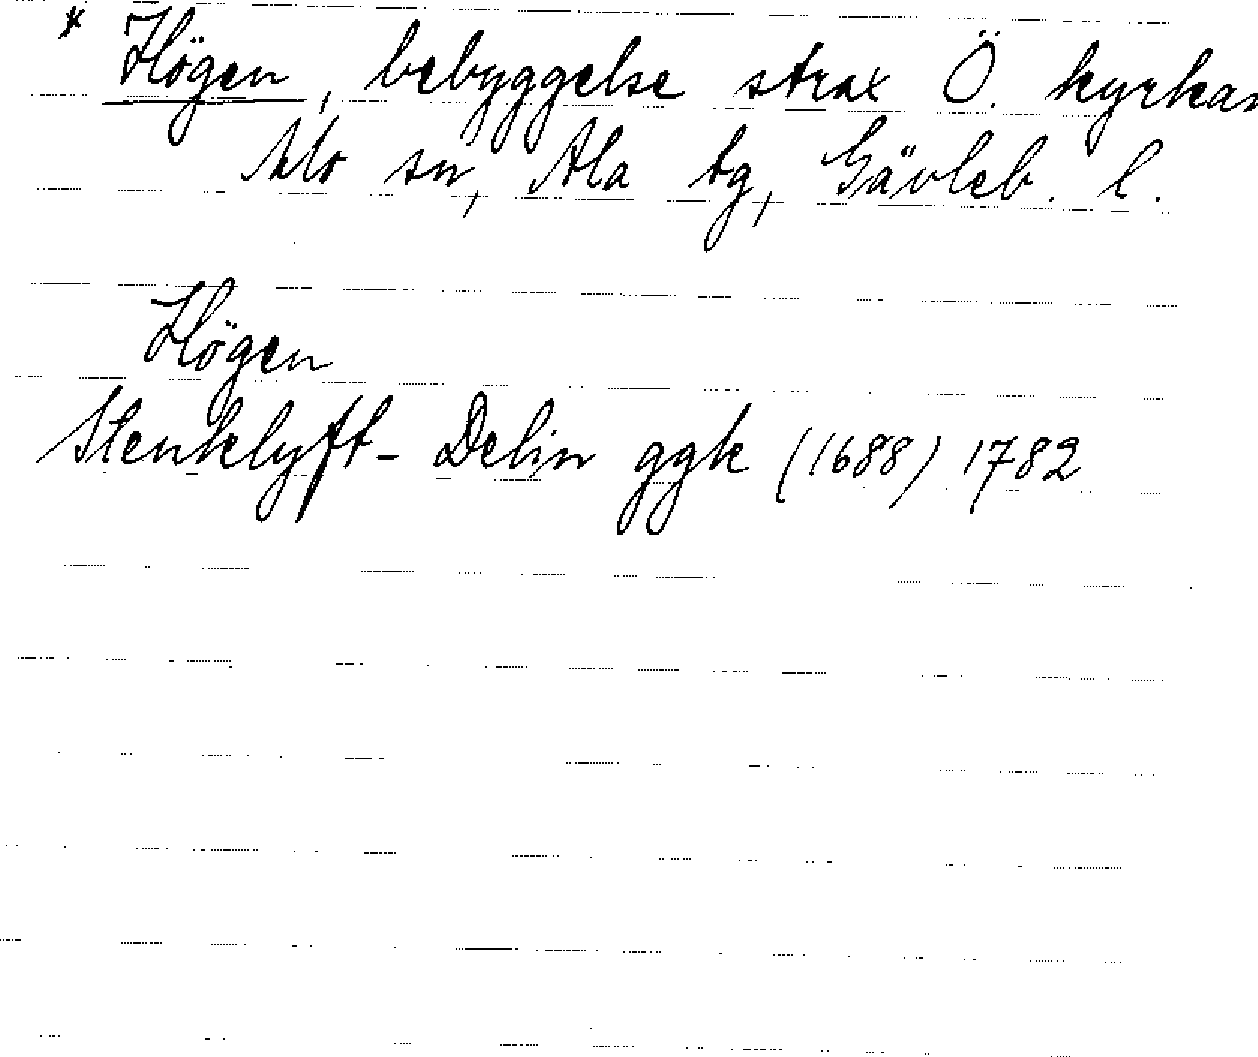 * Högen, bebyggelse strax Ö. kyrkan
Alo sn, Ala tg, Gävleb. l.
Högen
Stenklyft- Delin ggk (1688) 1782